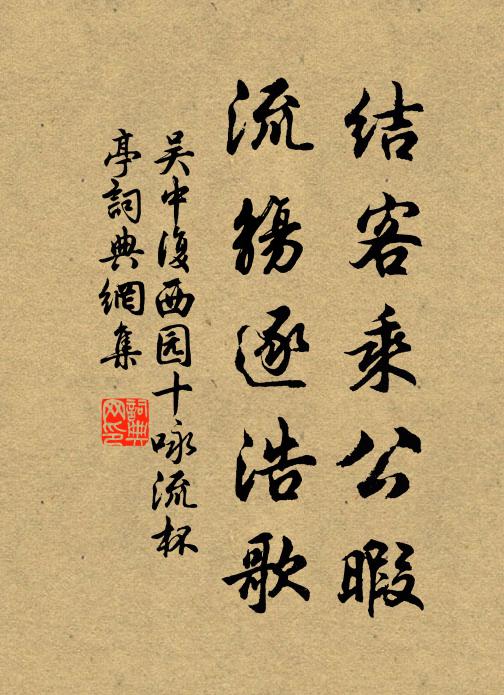 结客乘公暇
流觞逐浩歌
吴中復西园十咏流杯
亭詞典網集
詞典网印